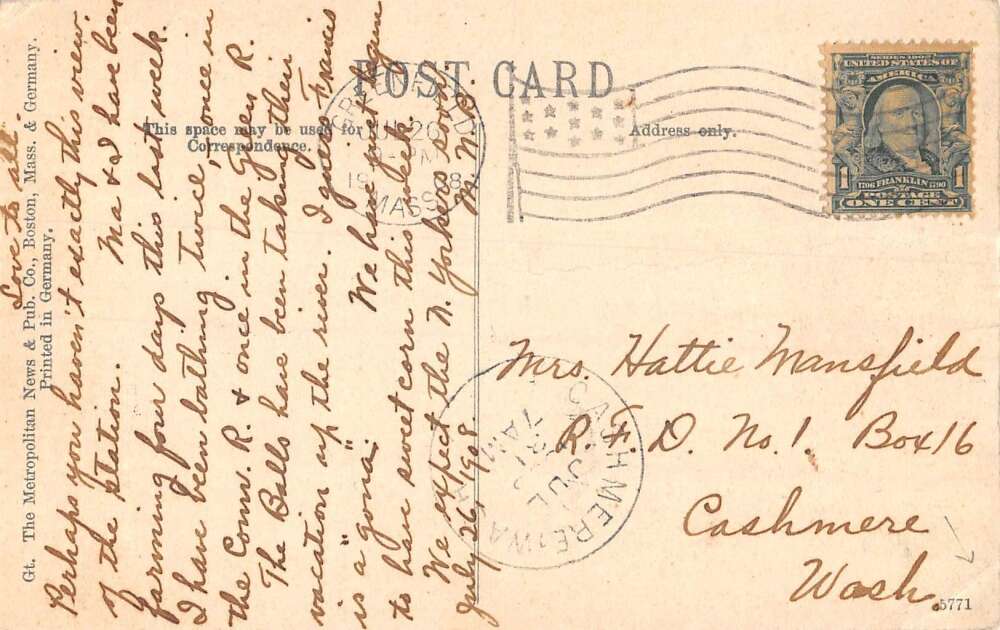 POST CARD
This space may be used for
Correspondence.
Address only.
SERIES 1902
UNITED STATES OF
AMERICA
1706 FRANKLIN 1790
1 POSTAGE 1
ONE CENT
GREENFIELD
JUL 26
MASS
Gt. The Metropolitan News & Pub. Co., Boston, Mass. & Germany.
Printed in Germany.
Love to all
Perhaps you haven't exactly this view
of the station. Ma & I have been
farming four days this last week.
I have been bathing twice, once in
the Conn. R. & once in the Green R.
The Balls have been taking their
vacation up the river. I guess Francis
is a "goner". We have just begun
to have sweet corn this week.
We expect the N. Yorkers soon.
July 26, 1908 M. W. C.
Mrs Hattie Mansfield
R. F. D. No. 1. Box 16
Cashmere
Wash.
CASHMERE WA
JUL
7 AM
5771